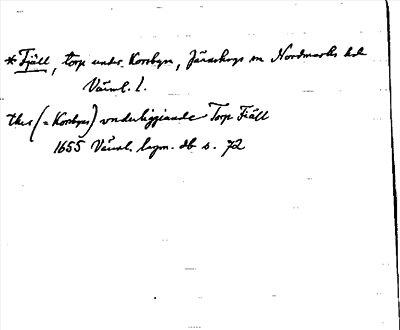 * Fjäll, torp under Korsbyn, Järnskogs sn Nordmarks hd
Värml. l.
thes (= Korsbyns) vnderliggiande Torp Fiäll
1655 Värml. lagm. db s. 72